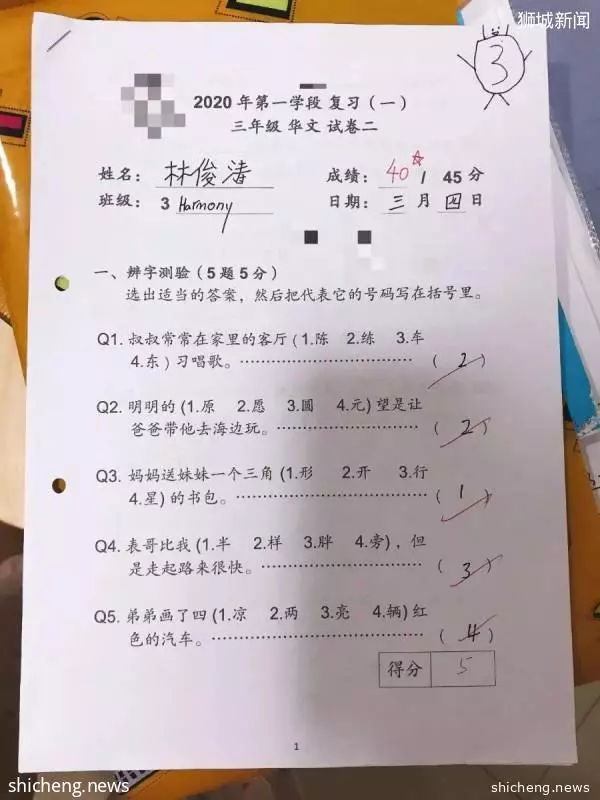 狮城新闻
3
2020 年第一学段 复习（一）
三年级 华文 试卷二
姓名： 林俊渚 成绩： 40 / 45 分
班级： 3 Harmony 日期： 三 月 四 日
一、辨字测验（5 题 5 分）
选出适当的答案，然后把代表它的号码写在括号里。
Q1. 叔叔常常在家里的客厅（1.陈 2.练 3.车
4.东）习唱歌。……………………………（ 2 ）
Q2. 明明的 (1.原 2.愿 3.圆 4.元) 望是让
爸爸带他去海边玩。……………………（ 2 ）
Q3. 妈妈送妹妹一个三角 (1.形 2.开 3.行
4.星) 的书包。……………………………（ 1 ）
Q4. 表哥比我 (1.半 2.样 3.胖 4.旁)，但
是走起路来很快。………………………（ 3 ）
Q5. 弟弟画了四 (1.凉 2.两 3.亮 4.辆) 红
色的汽车。………………………………（ 4 ）
得分 5
1
shicheng.news shicheng.news